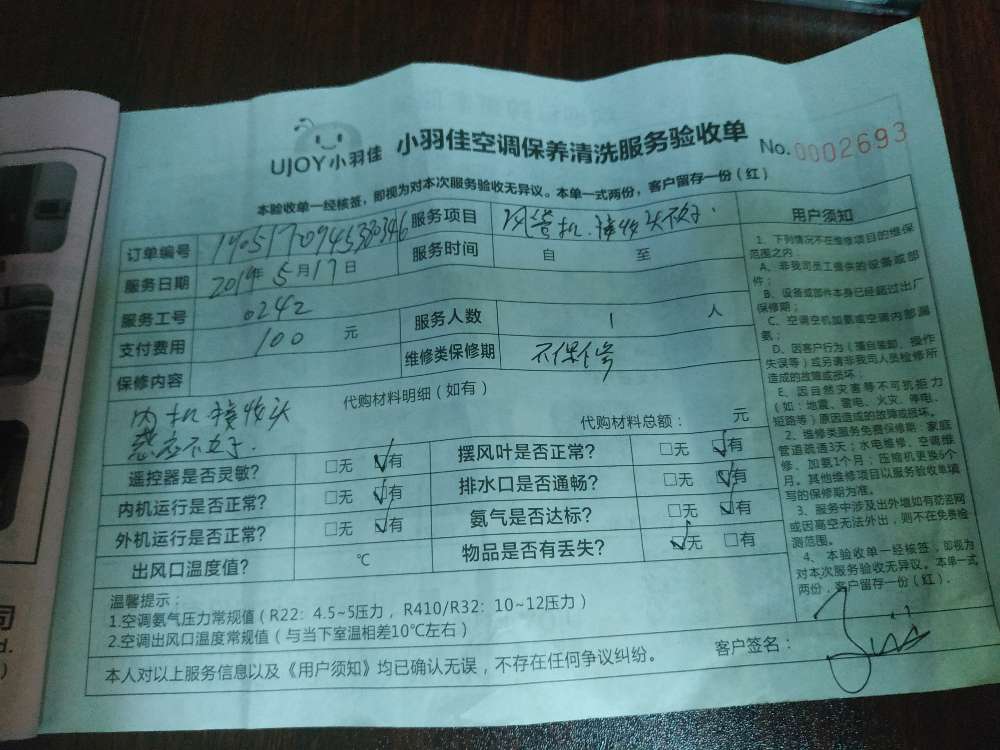 UJOY小羽佳 小羽佳空调保养清洗服务验收单 No.0002693
本验收单一经核签，即视为对本次服务验收无异议。本单一式两份，客户留存一份（红）
订单编号 服务项目 风管机.接收头不好.
服务日期 2019年5月17日 服务时间 自 至
服务工号 0242
支付费用 100 元 服务人数 1 人
保修内容 维修类保修期 不保修
代购材料明细（如有）
内机.接收头
感应不好.
代购材料总额： 元
遥控器是否灵敏? □无 □有 摆风叶是否正常? □无 □有
内机运行是否正常? □无 □有 排水口是否通畅? □无 □有
外机运行是否正常? □无 □有 氨气是否达标? □无 □有
出风口温度值? ℃ 物品是否有丢失? □无 □有
温馨提示：
1.空调氨气压力常规值（R22：4.5~5压力，R410/R32：10~12压力）
2.空调出风口温度常规值（与当下室温相差10℃左右）
本人对以上服务信息以及《用户须知》均已确认无误，不存在任何争议纠纷。
客户签名：
用户须知
1、下列情况不在维修项目的维保
范围之内
A、非我司员工提供的设备或部
件；
B、设备或部件本身已经超过出厂
保修期；
C、空调空机加氨或空调内部漏
氨；
D、因客户行为（擅自装卸、操作
失误等）或另请非我司人员检修所
造成的故障或损坏；
E、因自然灾害等不可抗拒力
（如：地震、雷电、火灾、停电、
短路等）原因造成的故障或损坏。
2、维修类服务免费保修期：家庭
管道疏通3天；水电维修、空调维
修、加氨1个月；压缩机更换6个
月。其他维修项目以服务验收单填
写的保修期为准。
3、服务中涉及出外墙如有防盗网
或因高空无法外出，则不在免费检
测范围。
4、本验收单一经核签，即视为
对本次服务验收无异议。本单一式
两份，客户留存一份（红）.
司
d.
)